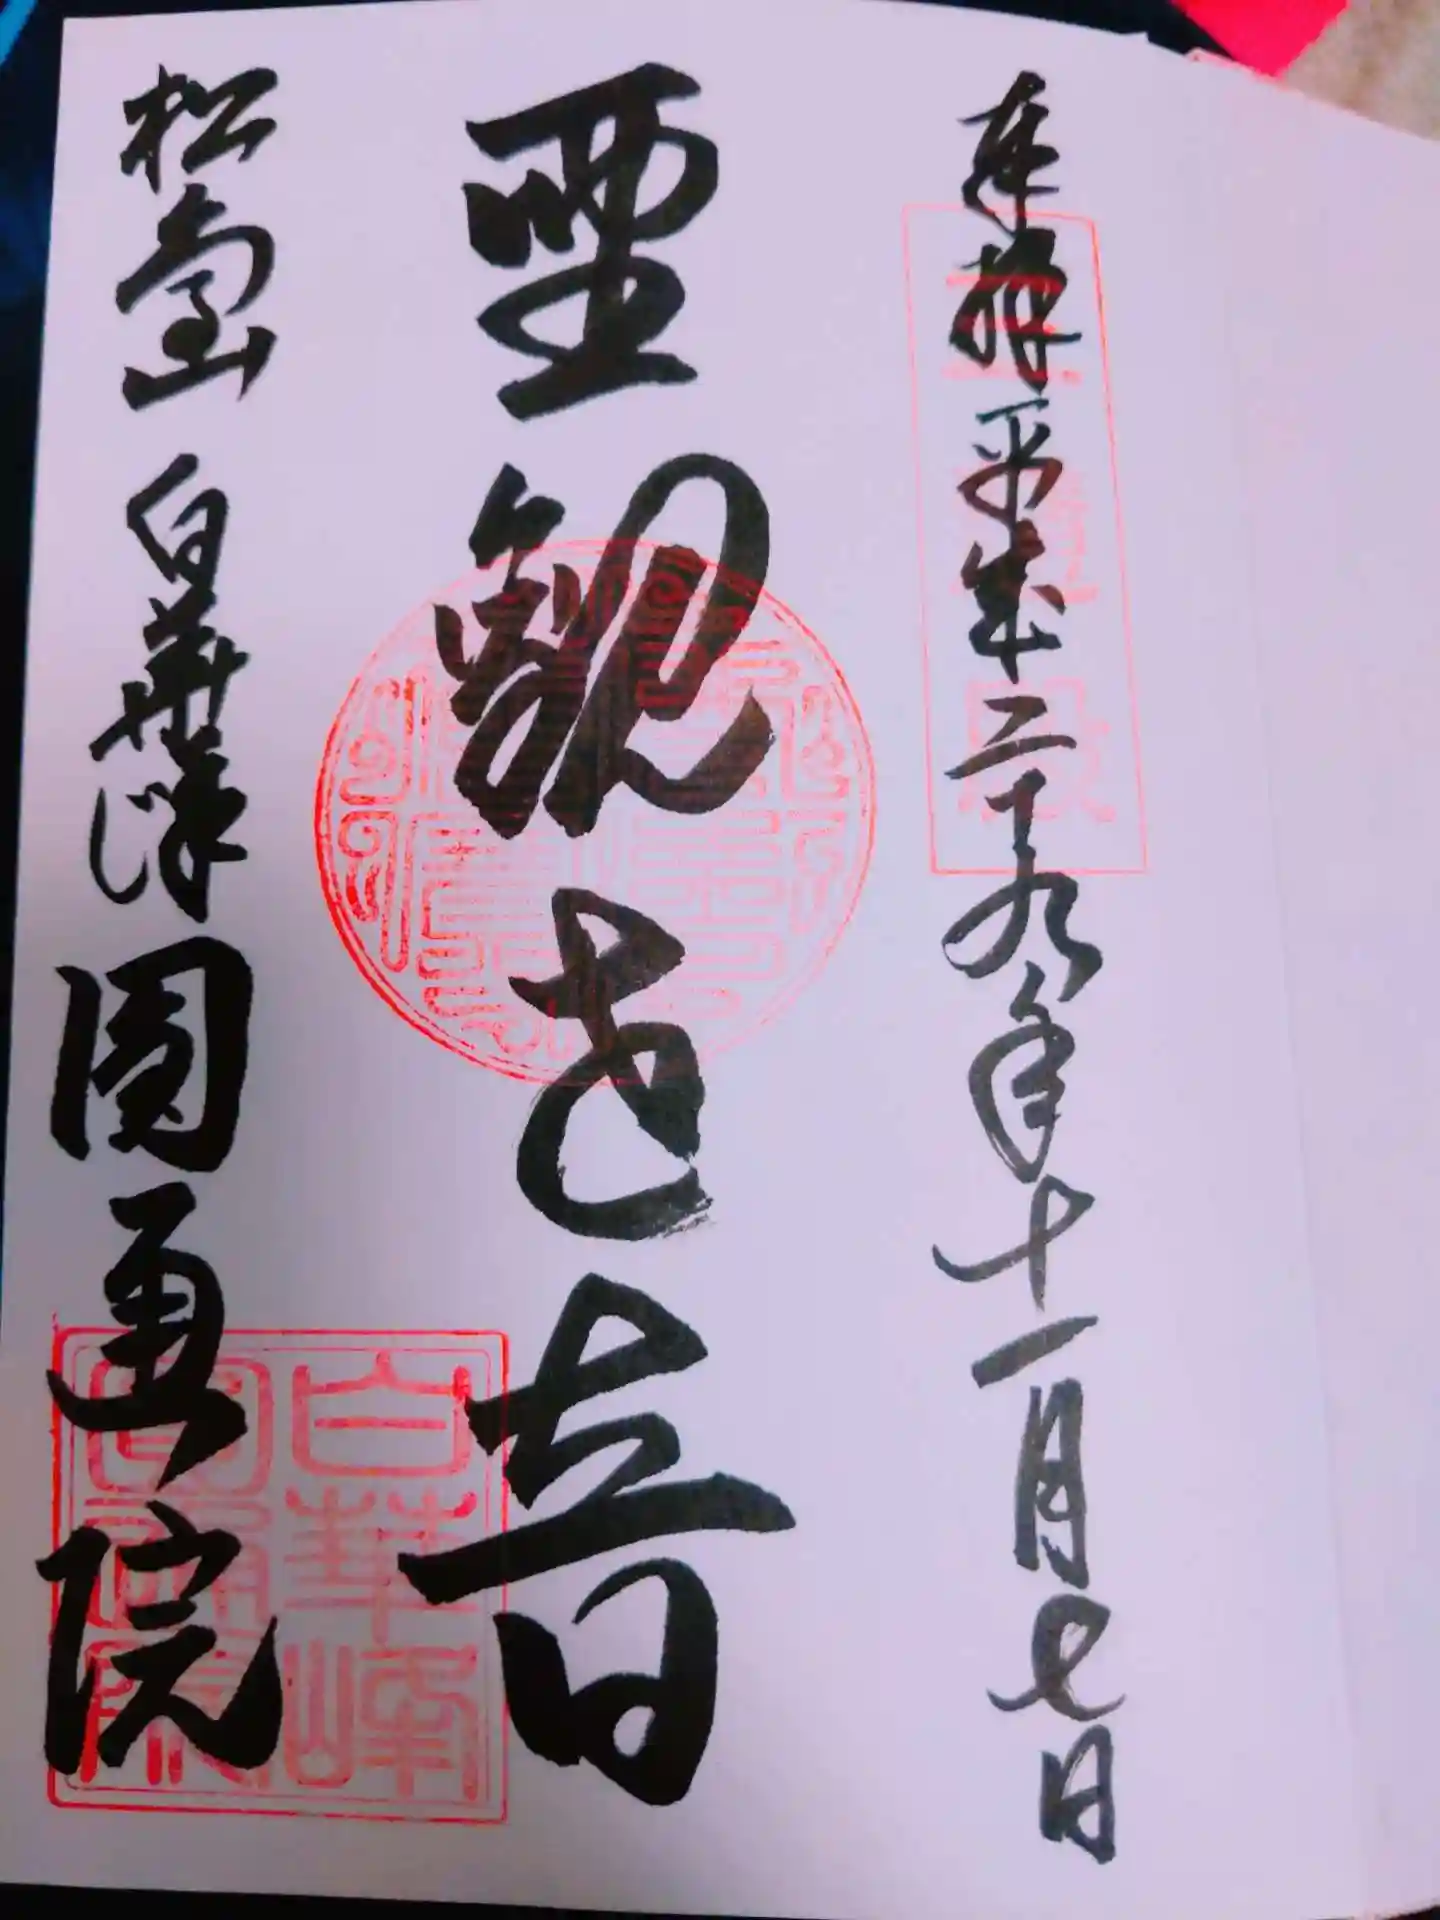 奉拝 平成二十九年十一月七日
三慧殿
聖観世音
松島 白華峰 圓通院
白華峰
圓通院